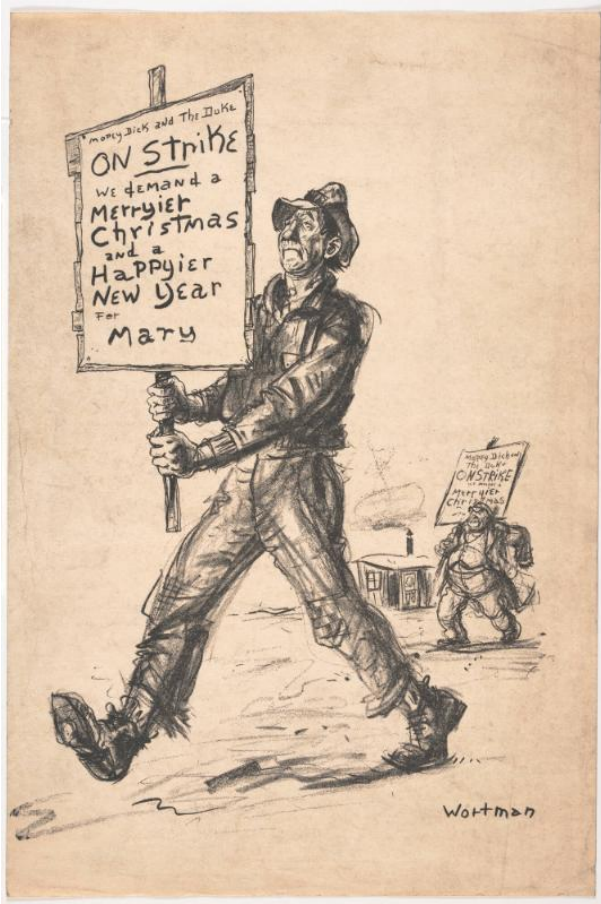 Mopey Dick and The Duke
ON Strike
We demand a
Merryier
Christmas
and a
Happyier
New Year
For
Mary
Mopey Dick and
The Duke
ON STRIKE
Merryier
Christmas
Wortman